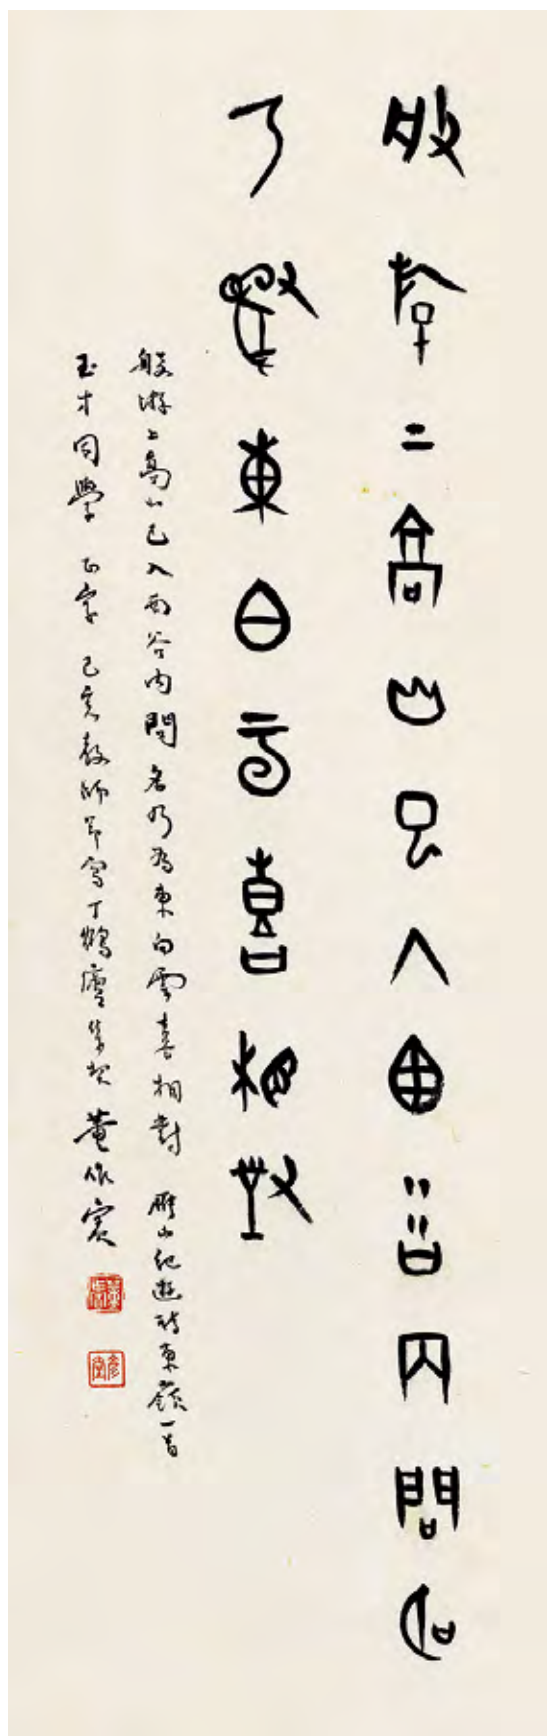 般游上高山已入西谷内問名
乃為東白雲喜相對
般游上高山已入西谷内問名乃為東白雲喜相對 雁山紀遊詩東嶺一首
玉才同學 正字 己亥教師節寫丁鶴廬集契 董作賓
彥堂